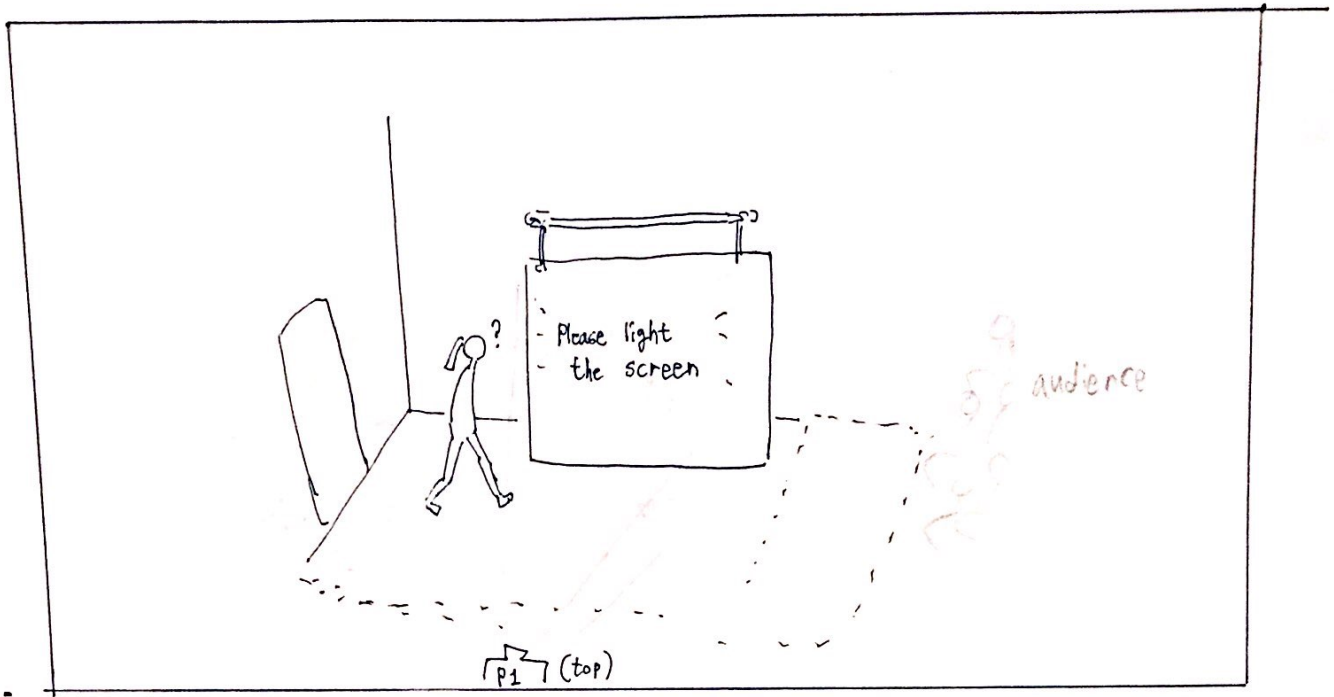 ?
Please light
the screen
audience
P1 (top)